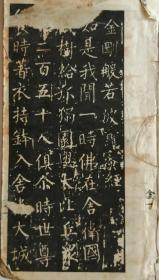 金剛般若波羅蜜經
如是我聞一時佛在舍衛國
樹給孤獨園與大比丘衆
二百五十人俱尒時世尊
食時著衣持鉢入舍衛大城